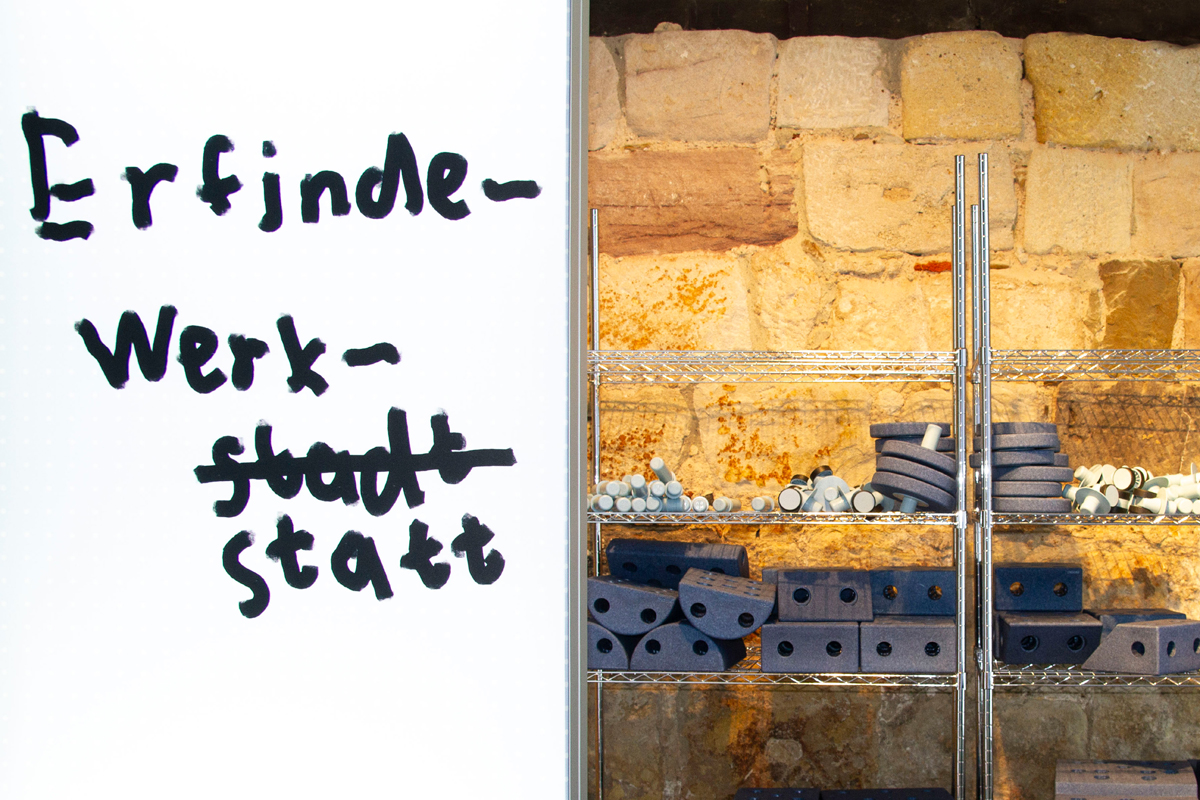 Erfinde-
Werk-
stadt
statt